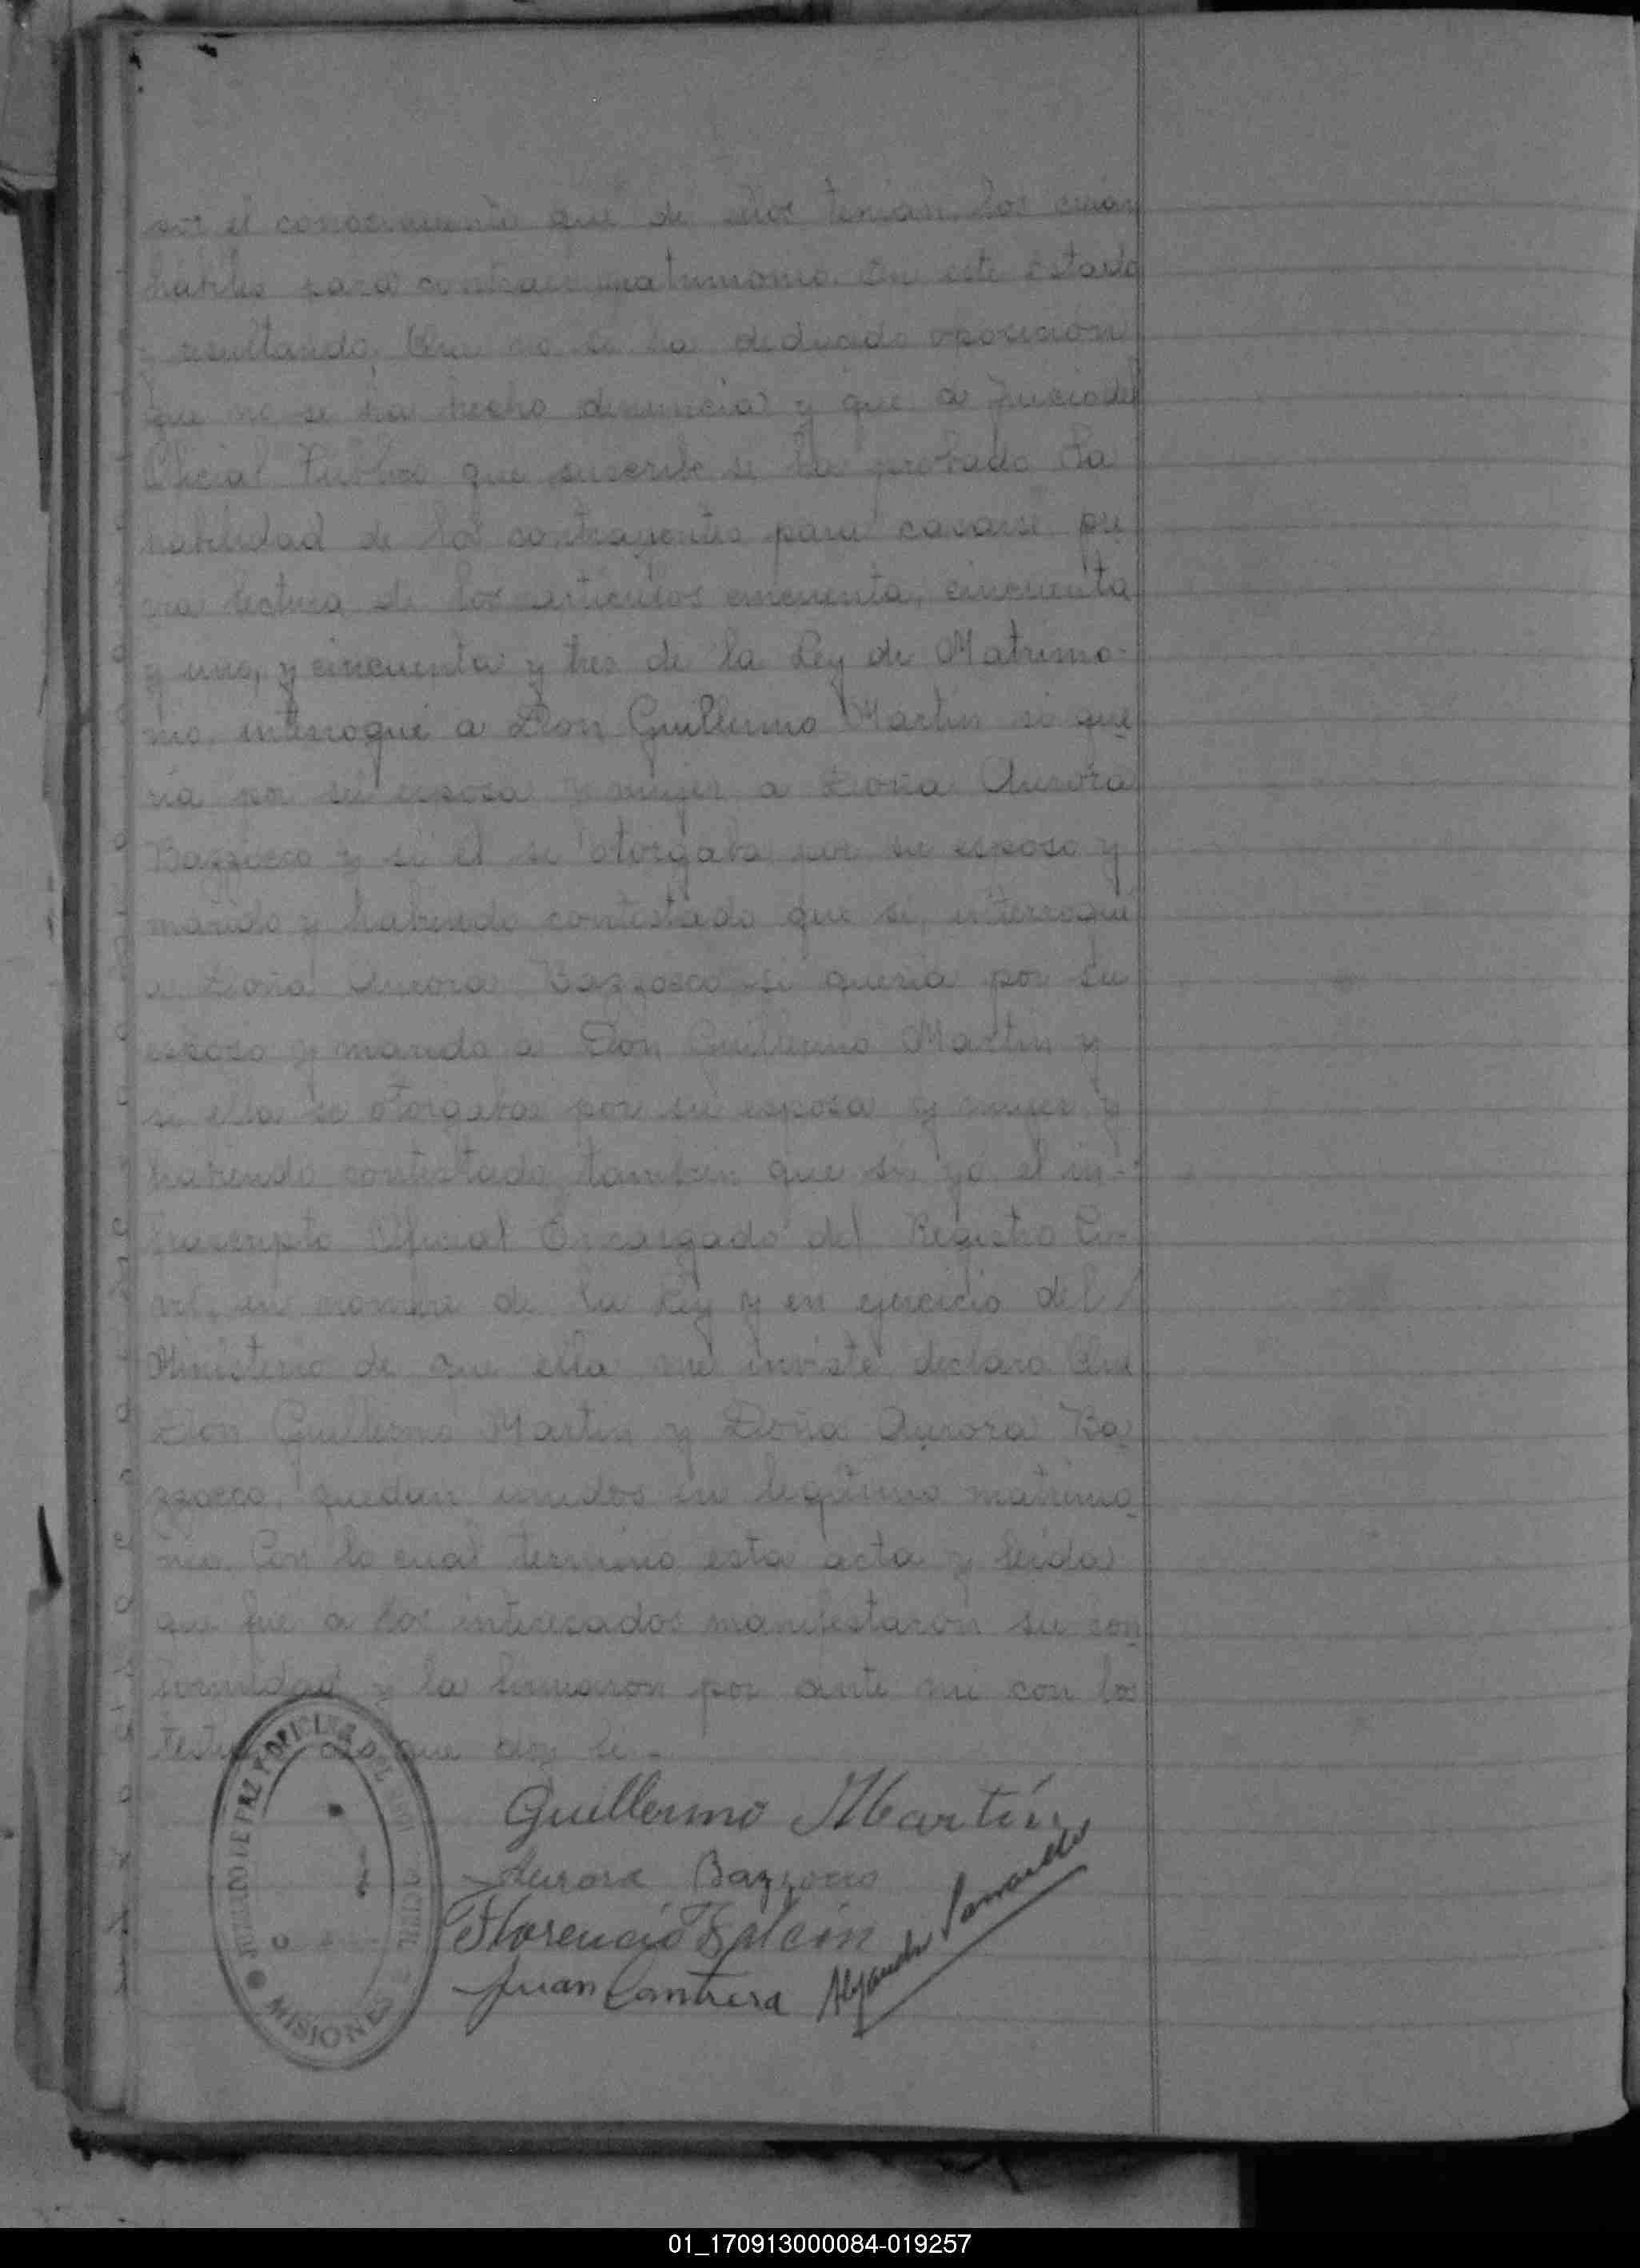 por el conocimiento que de ellos tenian, los creian
habiles para contraer matrimonio. En este Estado
y resultando: Que no se ha deducido oposición
que no se ha hecho denuncia y que a juicio del
Oficial Publico que suscribe se ha probado la
habilidad de los contrayentes para casarse, pre
via lectura de los articulos cincuenta, cincuenta
y uno, y cincuenta y tres de la Ley de Matrimo-
nio, interrogué a Don Guillermo Martin si que
ria por su esposa y mujer a Doña Aurora
Bazzocco y si el se otorgaba por su esposo y
marido y habiendo contestado que si, interrogué
a Doña Aurora Bazzocco si queria por su
esposo y marido a Don Guillermo Martin y
si ella se otorgaba por su esposa y mujer y
habiendo contestado tambien que si yo el in-
frascripto Oficial Encargado del Registro Ci-
vil, en nombre de la Ley y en ejercicio del
Ministerio de que ella me inviste, declaro Que
Don Guillermo Martin y Doña Aurora Ba
zzocco, quedan unidos en legitimo matrimo
nio. Con lo cual termino esta acta y leida
que fue a los interesados manifestaron su con
formidad y la firmaron por ante mi con los
de que doy fe.-
Guillermo Martín
Aurora Bazzocco
Florencio
Juan Contrera Alejandro
JUZGADO DE PAZ Y OFICINA DEL
MISIONES
01_170913000084-019257